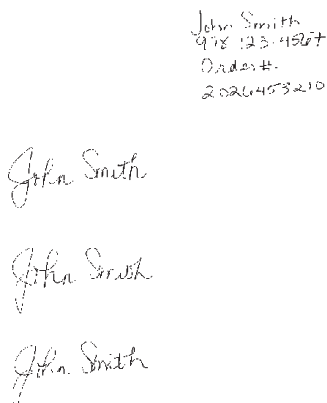 John Smith
978 123-4567
Order #.
2026453210
John Smith
John Smith
John Smith